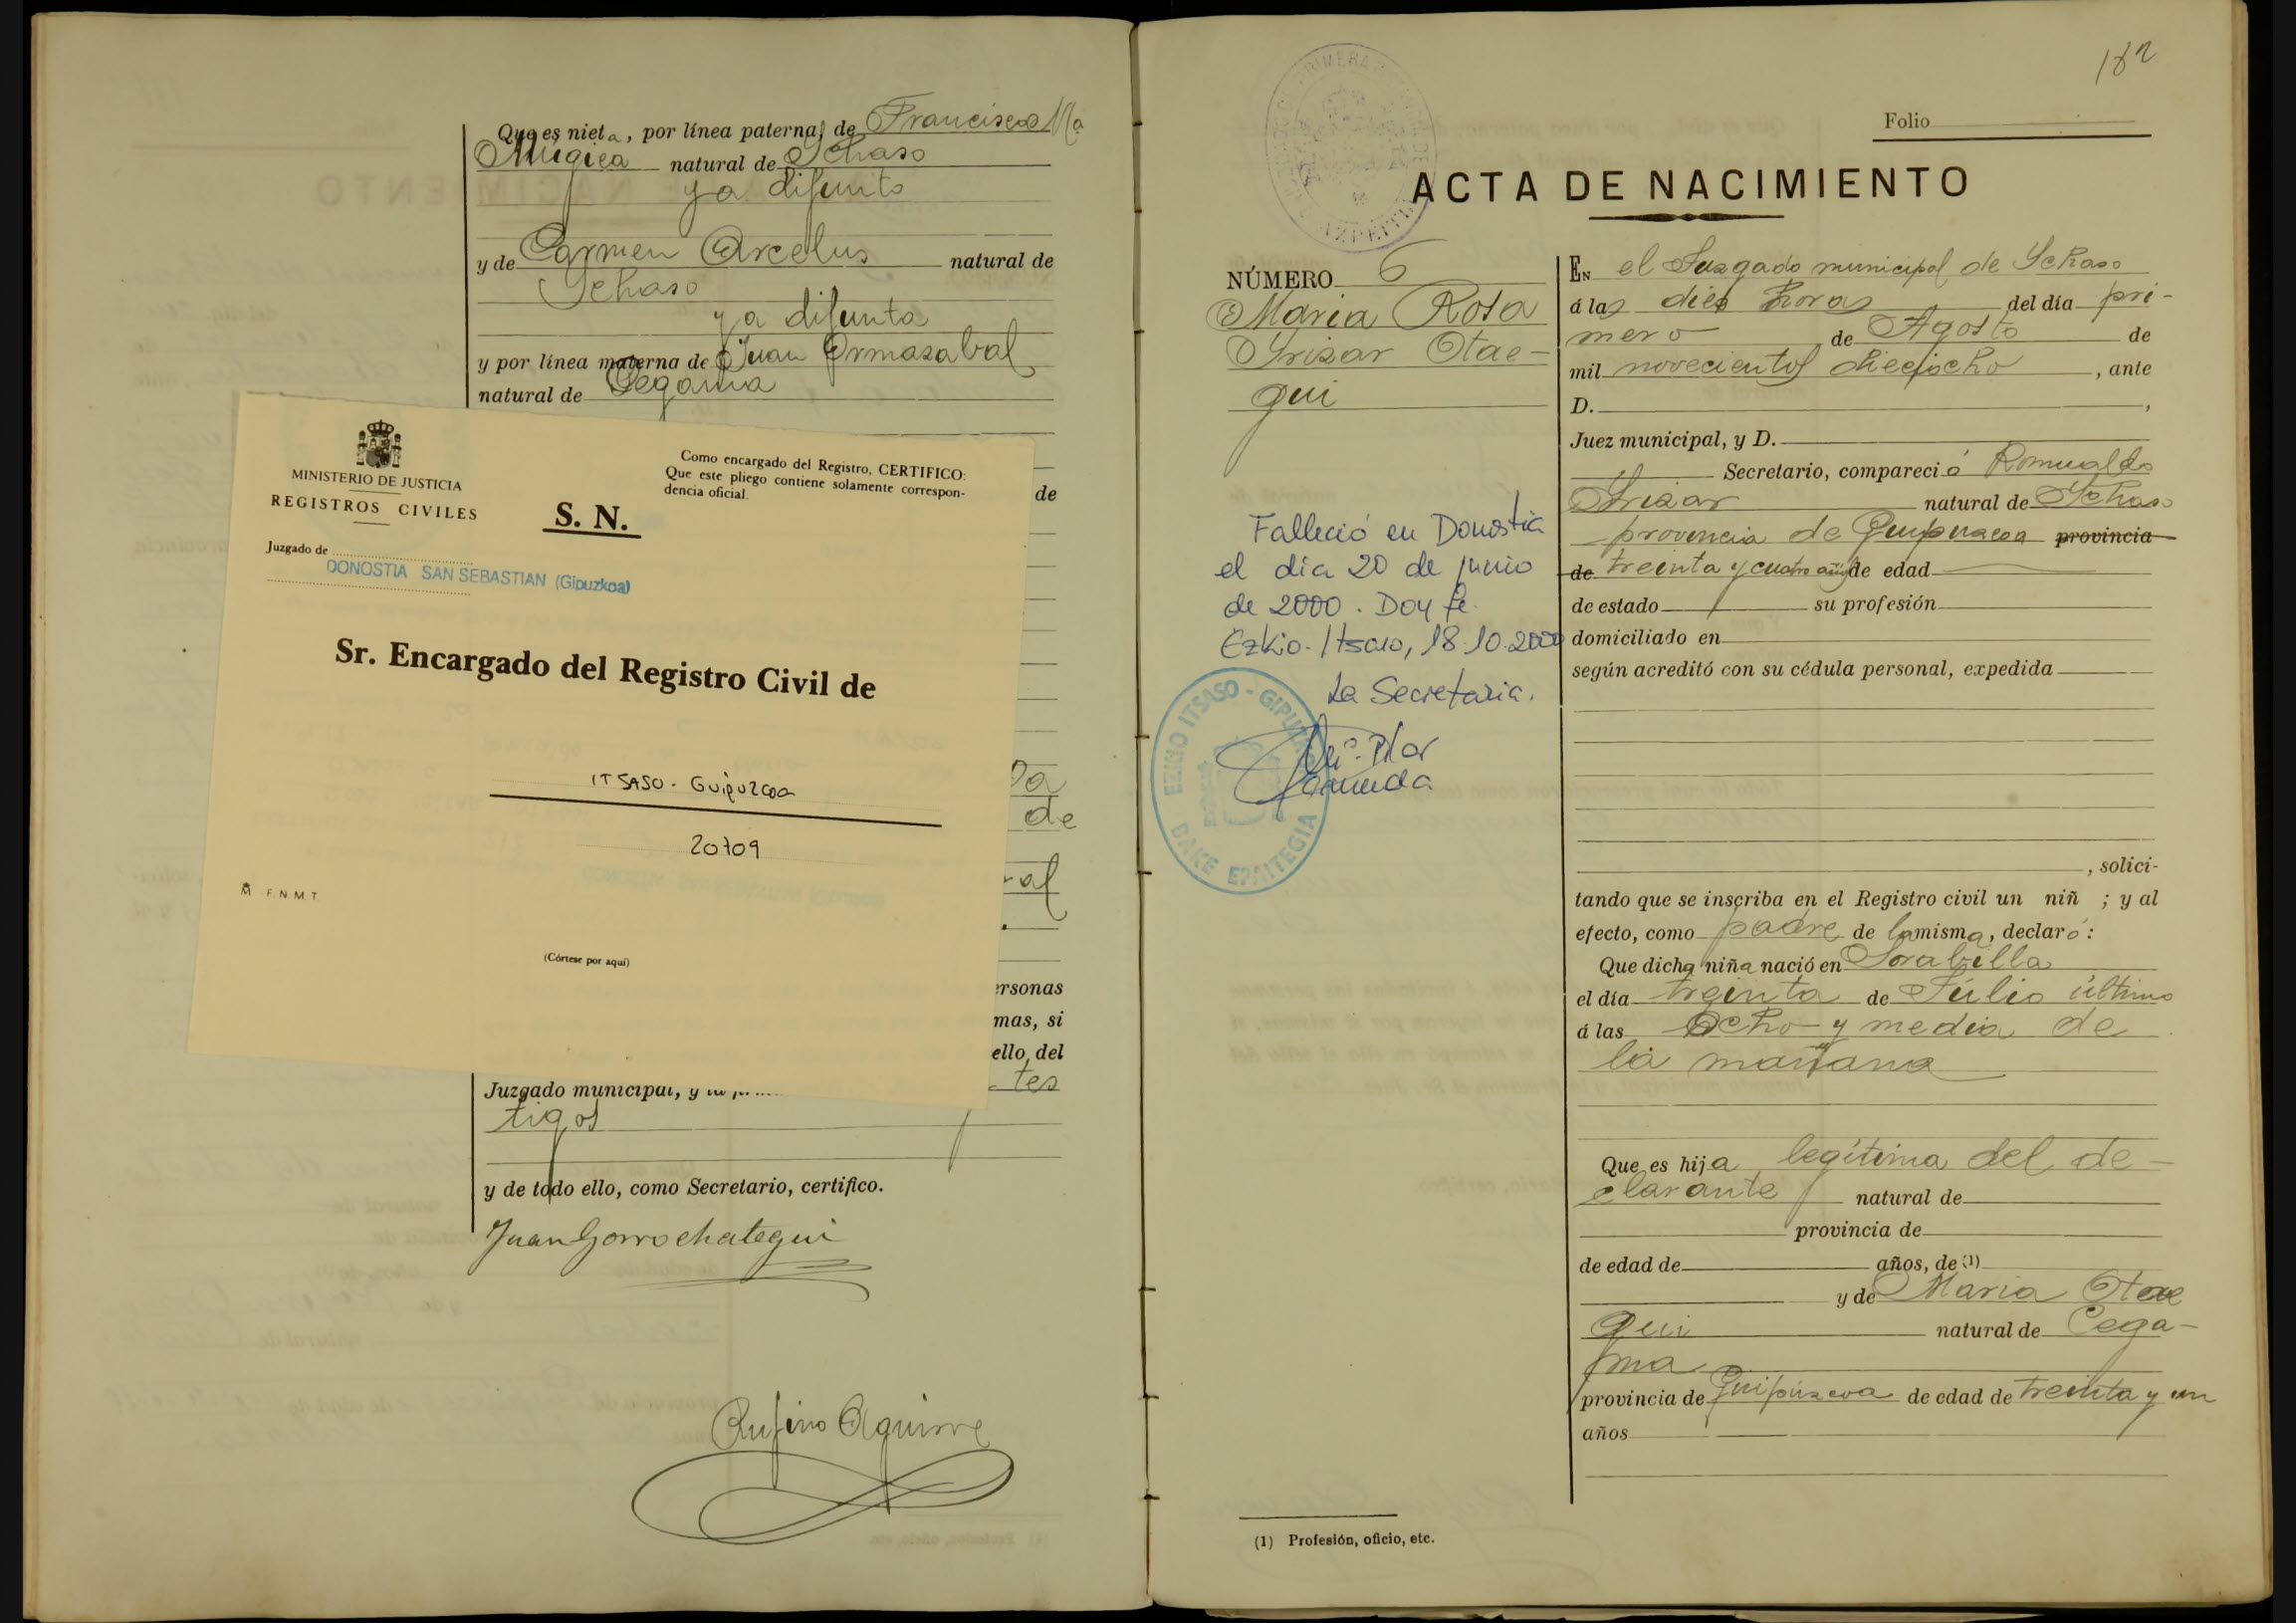 Que es nieta, por línea paterna, de Francisco Mª
Múgica natural de Ichaso
ya difunto
y de Carmen Arcelus natural de
Ichaso
ya difunta
y por línea materna de Juan Ormazabal
natural de Cegama
MINISTERIO DE JUSTICIA
REGISTROS CIVILES
S. N.
Como encargado del Registro, CERTIFICO:
Que este pliego contiene solamente correspon-
dencia oficial.
Juzgado de
DONOSTIA SAN SEBASTIAN (Gipuzkoa)
Sr. Encargado del Registro Civil de
ITSASO - Guipuzcoa
20709
F. N. M. T.
(Córtese por aquí)
de
de
ersonas
mas, si
ello, del
Juzgado municipal, y tes
tigos
y de todo ello, como Secretario, certifico.
Juan Gorrochategui
Rufino Aguirre
182
Folio
ACTA DE NACIMIENTO
NÚMERO 6
Maria Rosa
Irizar Otae-
gui
Falleció en Donostia
el día 20 de junio
de 2000. Doy fe.
Ezkio-Itsaso, 18.10.2000
La Secretaria.
Mª Pilar
EZKIO ITSASO - GIPUZKOA
BAKE EPAITEGIA
En el Juzgado municipal de Ichaso
á las diez horas del día pri-
mero de Agosto de
mil novecientos dieciocho, ante
D. ,
Juez municipal, y D.
Secretario, compareció Romualdo
Irizar natural de Ichaso
provincia de Guipuzcoa provincia
de treinta y cuatro años de edad
de estado su profesión
domiciliado en
según acreditó con su cédula personal, expedida
, solici-
tando que se inscriba en el Registro civil un niñ ; y al
efecto, como padre de la misma, declaró:
Que dicha niña nació en Sorabilla
el día treinta de Julio último
á las ocho y media de
la mañana
Que es hija legítima del de-
clarante natural de
provincia de
de edad de años, de (1)
y de Maria Otae
gui natural de Cega-
ma
provincia de Guipúzcoa de edad de treinta y un
años
(1) Profesión, oficio, etc.